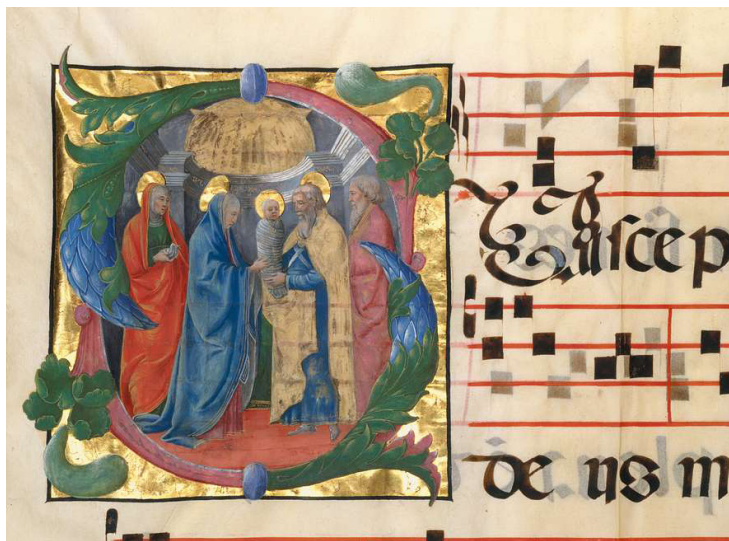 SUscep
de us m